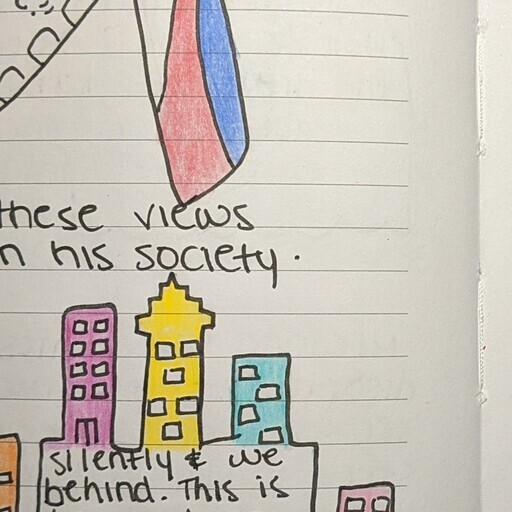 these views
n his society.
silently & we
behind. This is